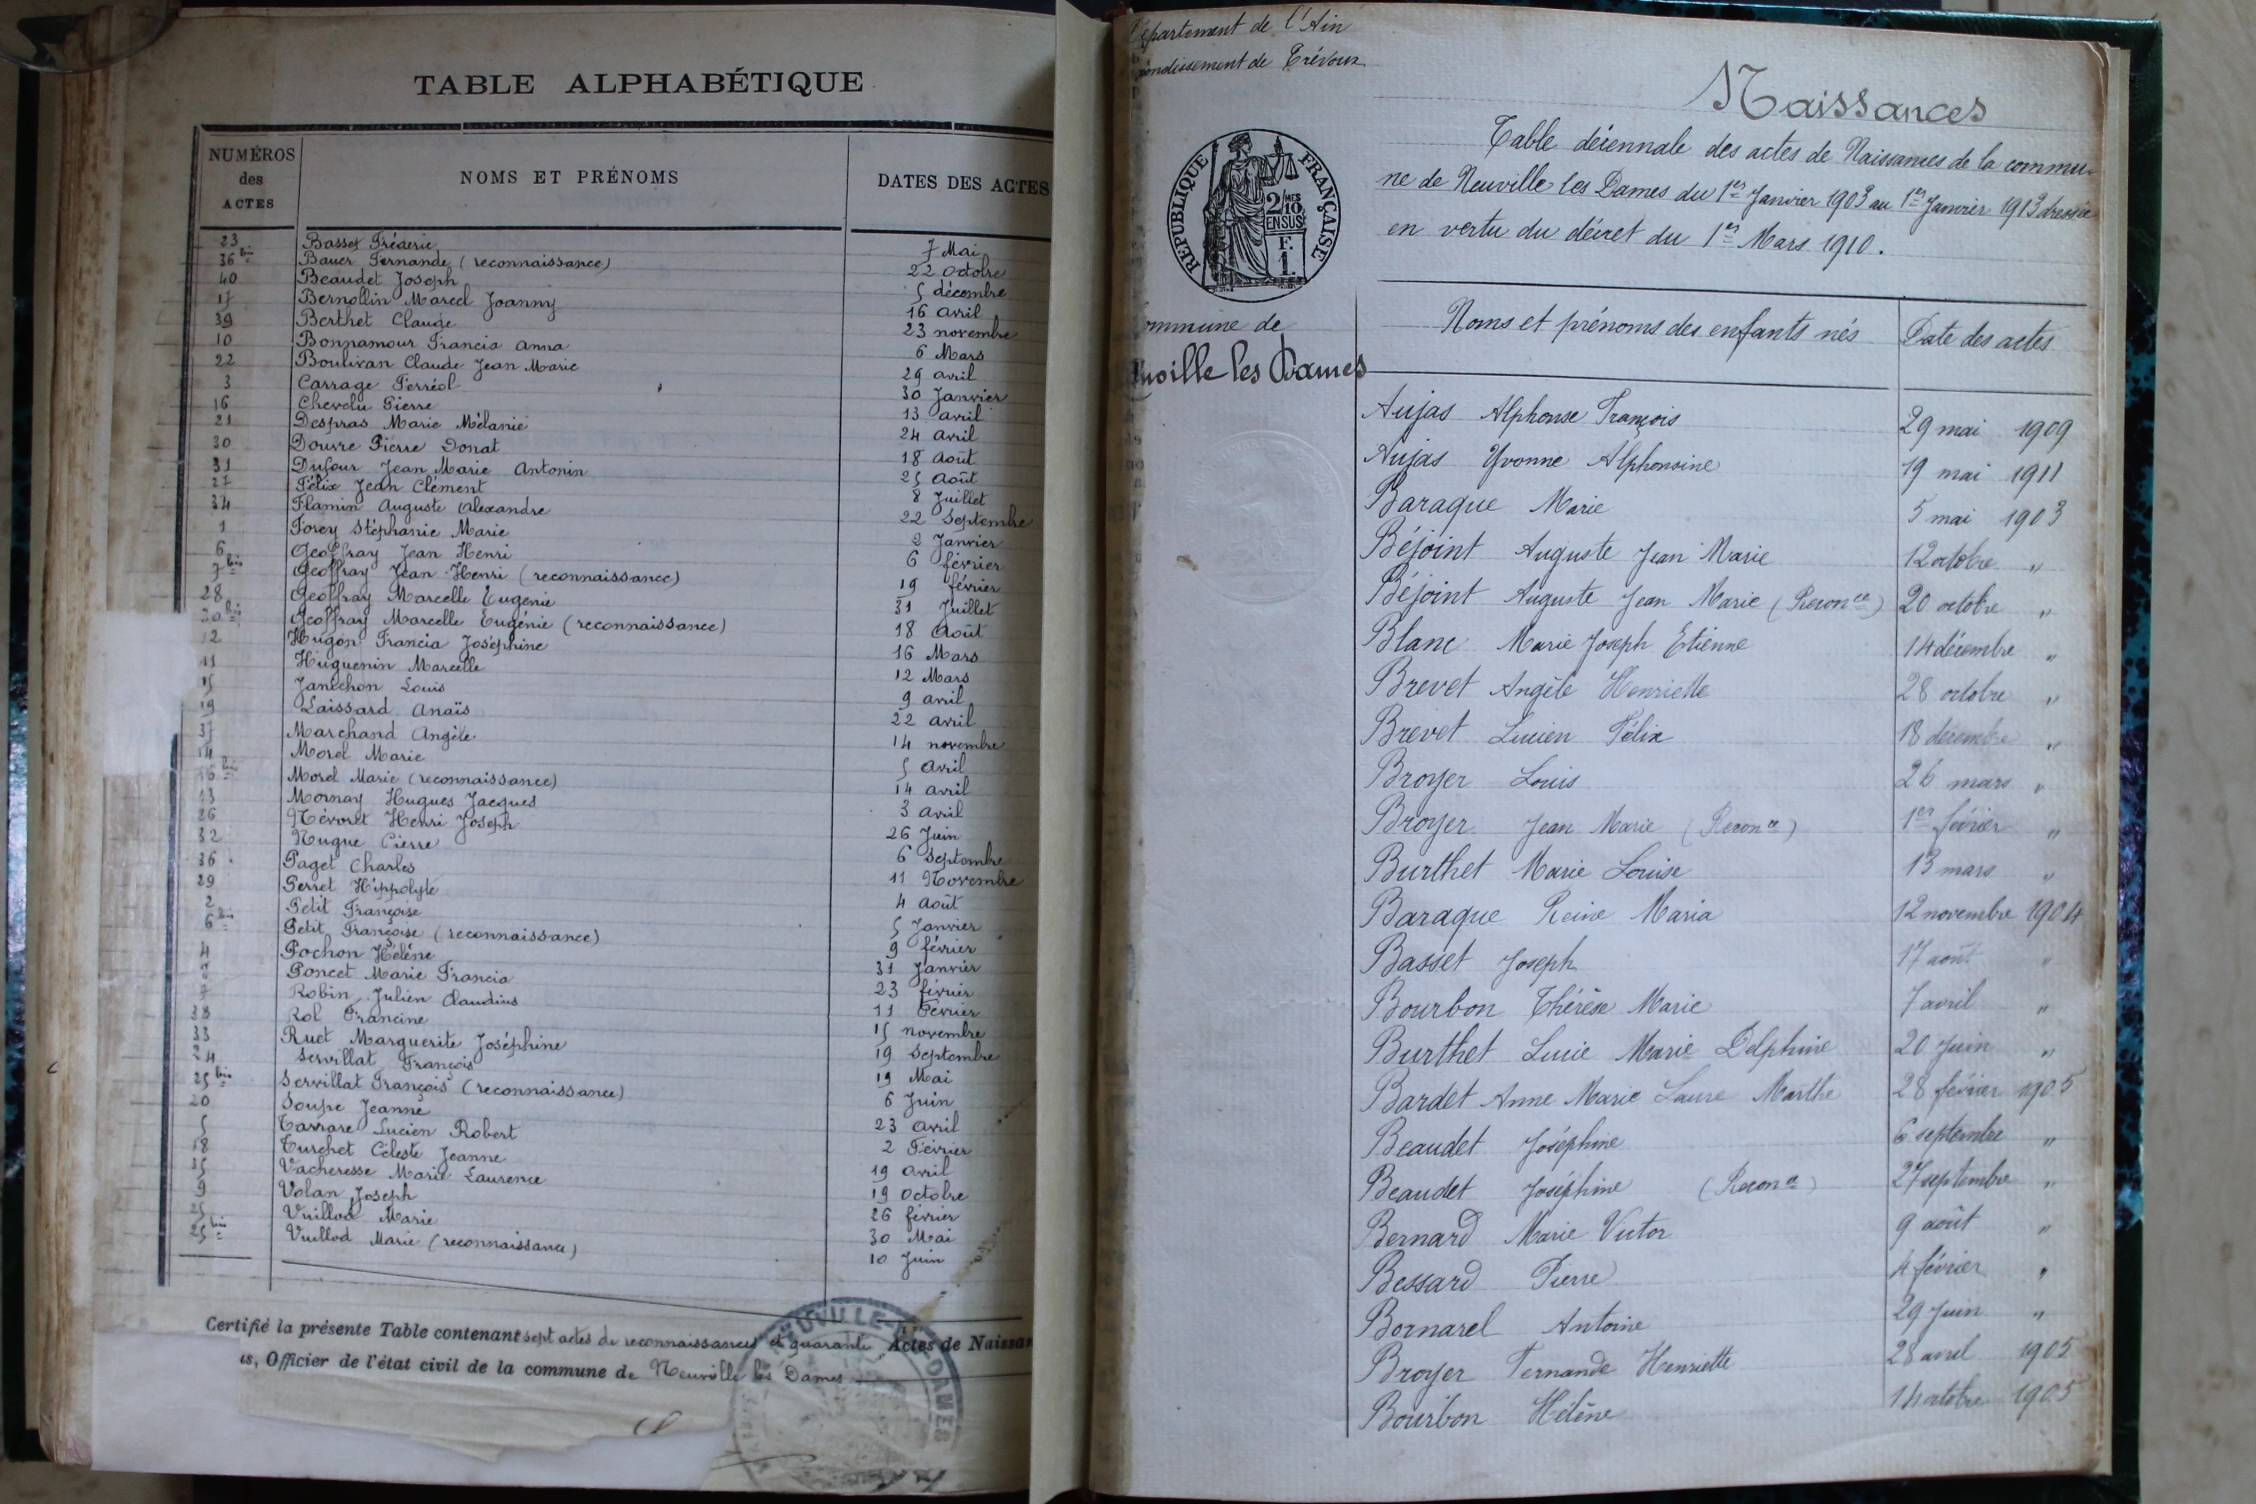 TABLE ALPHABÉTIQUE
NUMÉROS des ACTES NOMS ET PRÉNOMS DATES DES ACTES
23 Basset Fréderic 7 Mai
36 bis Bauer Fernande (reconnaissance) 22 Octobre
40 Beaudet Joseph 5 décembre
17 Bernollin Marcel Joanny 16 avril
39 Berthet Claude 23 novembre
10 Bonnamour Francia Anna 6 Mars
22 Boulivan Claude Jean Marie 29 avril
3 Carrage Ferréol 30 Janvier
16 Chevelu Pierre 13 avril
21 Despras Marie Mélanie 24 avril
30 Douvre Pierre Donat 18 Août
31 Dufour Jean Marie Antonin 25 Août
27 Félix Jean Clément 8 Juillet
34 Flamin Auguste Alexandre 22 Septembre
1 Forey Stéphanie Marie 2 Janvier
6 Geoffray Jean Henri 6 février
7 bis Geoffray Jean Henri (reconnaissance) 19 février
28 Geoffray Marcelle Eugénie 31 Juillet
30 bis Geoffray Marcelle Eugénie (reconnaissance) 18 Août
12 Hugon Francia Joséphine 16 Mars
11 Huguenin Marcelle 12 Mars
15 Janichon Louis 9 avril
19 Laissard Anaïs 22 avril
37 Marchand Angèle 14 novembre
14 Morel Marie 5 Avril
16 bis Morel Marie (reconnaissance) 14 avril
13 Mornay Hugues Jacques 3 avril
26 Névoret Henri Joseph 26 Juin
32 Nugue Pierre 6 Septembre
36 Paget Charles 11 Novembre
29 Perret Hippolyte 4 août
2 Petit Françoise 5 Janvier
6 bis Petit Françoise (reconnaissance) 9 février
4 Pochon Hélène 31 Janvier
8 Poncet Marie Francia 23 février
7 Robin Julien Claudius 11 Février
38 Rol Francine 15 novembre
33 Ruet Marguerite Joséphine 19 Septembre
24 Servillat François 19 Mai
25 bis Servillat François (reconnaissance) 6 Juin
20 Soupe Jeanne 23 avril
5 Tarrare Lucien Robert 2 Février
18 Turchet Céleste Jeanne 19 avril
35 Vacheresse Marie Laurence 19 Octobre
9 Volan Joseph 26 février
25 Vuillod Marie 30 Mai
25 bis Vuillod Marie (reconnaissance) 10 Juin
Certifié la présente Table contenant sept actes de reconnaissances et quarante Actes de Naissan
is, Officier de l'état civil de la commune de Neuville les Dames
épartement de l'Ain
ondissement de Trévoux
Naissances
RÉPUBLIQUE FRANÇAISE
2/10 MES EN SUS
F. 1.
Table décennale des actes de Naissances de la commu-
ne de Neuville les Dames du 1er Janvier 1903 au 1er Janvier 1913 dressée
en vertu du décret du 1er Mars 1910.
ommune de
uville les Dames
Noms et prénoms des enfants nés Date des actes
Aujas Alphonse François 29 mai 1909
Aujas Yvonne Alphonsine 19 mai 1911
Baraque Marie 5 mai 1903
Béjoint Auguste Jean Marie 12 octobre "
Béjoint Auguste Jean Marie (Reconce) 20 octobre "
Blanc Marie Joseph Etienne 14 décembre "
Brevet Angèle Henriette 28 octobre "
Brevet Lucien Félix 18 décembre "
Broyer Louis 26 mars "
Broyer Jean Marie (Reconce) 1er février "
Burthet Marie Louise 13 mars "
Baraque Reine Maria 12 novembre 1904
Basset Joseph 17 août "
Bourbon Thérèse Marie 7 avril "
Burthet Lucie Marie Delphine 20 Juin "
Bardet Anne Marie Laure Marthe 28 février 1905
Beaudet Joséphine 6 septembre "
Beaudet Joséphine (Reconce) 27 septembre "
Bernard Marie Victor 9 août "
Bessard Pierre 4 février "
Bornarel Antoine 29 Juin "
Broyer Fernande Henriette 28 avril 1905
Bourbon Hélène 14 octobre 1905